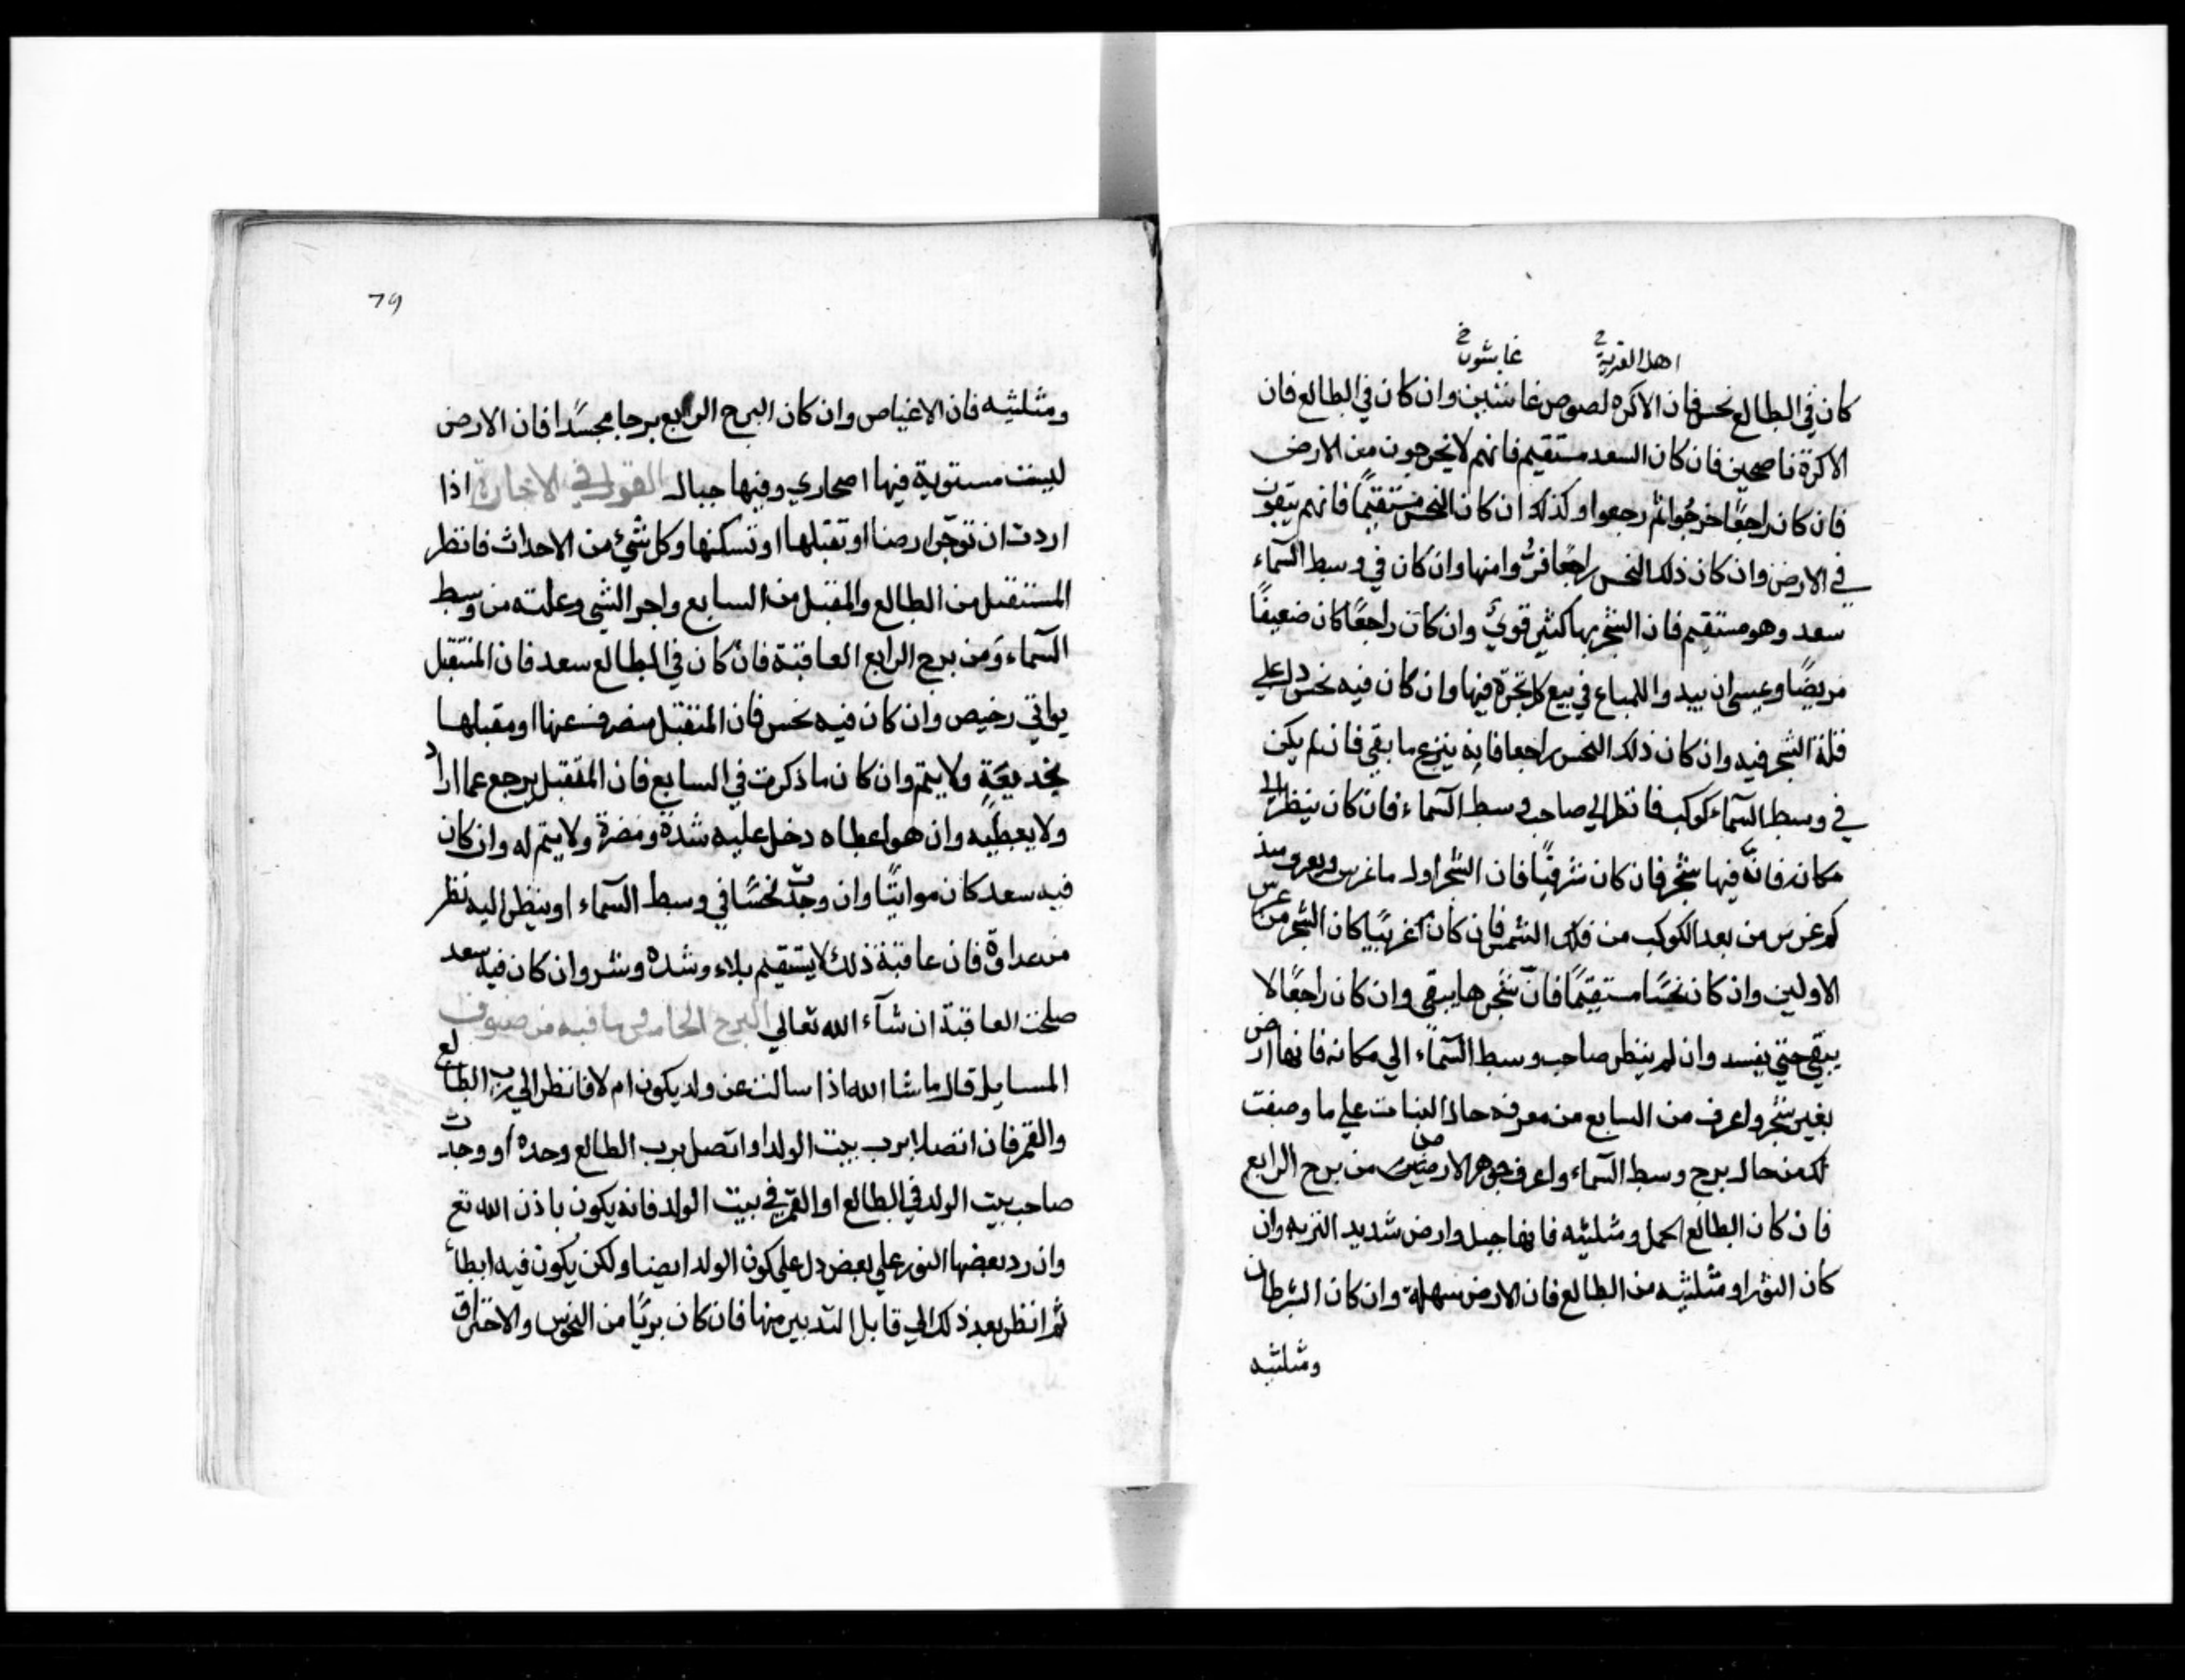 اهل القرية خ غاشون خ
كان في الطالع نحس فان الاكره لصوص غاشين وان كان في الطالع فان
الاكرة ناصحين فان كان السعد مستقيم فانهم لا يخرجون من الارض
فان كان راجعًا خرجُوا ثم رجعوا وكذلك ان كان النحس مستقيمًا فانهم يبقون
في الارض وان كان ذلك النحس راجعًا فرُّوا منها وان كان في وسط السّماء
سعد وهو مستقيم فان الشجر بها كثير قويّ وان كان راجعًا كان ضعيفًا
مريضًا وعسى ان يبدوا للمباع في بيع كل شجرة فيها وان كان فيه نحس دل على
قلة الشجر فيه وان كان ذلك النحس راجعا فانه ينزع ما بقي فان لم يكن
في وسط السّماء كوكب فانظر الي صاحب وسط السّماء فان كان ينظر الي
مكانه فانّه فيها شجر فان كان شرقيًا فان الشجر اول ما غرس ويعرف منذ
كم غرس من بعد الكوكب من فلك الشمس فان كان غربيًا كان الشجر من غرس
الاولين وان كان نحسًا مستقيمًا فانّ شجرها يبقى وان كان راجعًا لا
يبقي حتي يفسد وان لم ينظر صاحب وسط السّماء الي مكانه فانها ارض
بغير شجر واعرف من السابع من معرفه حال النبات علي ما وصفت
لك من حال برج وسط السّماء واعرف جوهر الارضين من برج الرابع
فان كان الطالع الحمل ومثلثيه فانها جبل وارض شديد التربه وان
كان الثور او مثلثيه من الطالع فان الارض سهلة وان كان السّرطان
ومثلثيه
79
ومثلثيه فان الاغياص وان كان البرج الرابع برجا مجسّدا فان الارض
ليست مستوية فيها اصحاري وفيها جبال القول في الاجارة اذا
اردت ان توجّر ارضا او تقبلها او تسكنها وكل شيء من الاحداث فانظر
المستقبل من الطالع والمقبل من السابع واجر الشي وعلته من وسط
السّماء ومن برج الرابع العاقبة فان كان في الطالع سعد فان المتقبل
يواتي رخيص وان كان فيه نحس فان المتقبل منصرف عنها او مقبلها
بخديعَةٍ ولا يتم وان كان ما ذكرت في السابع فان المتقبل يرجع عما اراد
ولا يعطيه وان هو اعطاه دخل عليه شدة ومضرة ولا يتم له وان كان
فيه سعد كان مواتيًا وان وجدّت نحسًا في وسط السّماء او ينظر اليه نظر
من عداوة فان عاقبة ذلك لا يستقيم بلاء وشده وشر وان كان فيه سعد
صلحت العاقبة ان شآء الله تعالي البرج الخامس وما فيه من صنوف
المسايل قال ما شا الله اذا سالت عن ولد يكون ام لا فانظر الي رب الطالع
والقمر فان اتصلا برب بيت الولد او اتصل برب الطالع وحده او وجدت
صاحب بيت الولد في الطالع او القمر في بيت الولد فانه يكون باذن الله تع
وان رد بعضها النور علي بعض دل علي كون الولد ايضا ولكن يكون فيه ابطاء
ثم انظر بعد ذلك الي قابل التدبير منها فان كان بريًا من النحوس والاحتراق